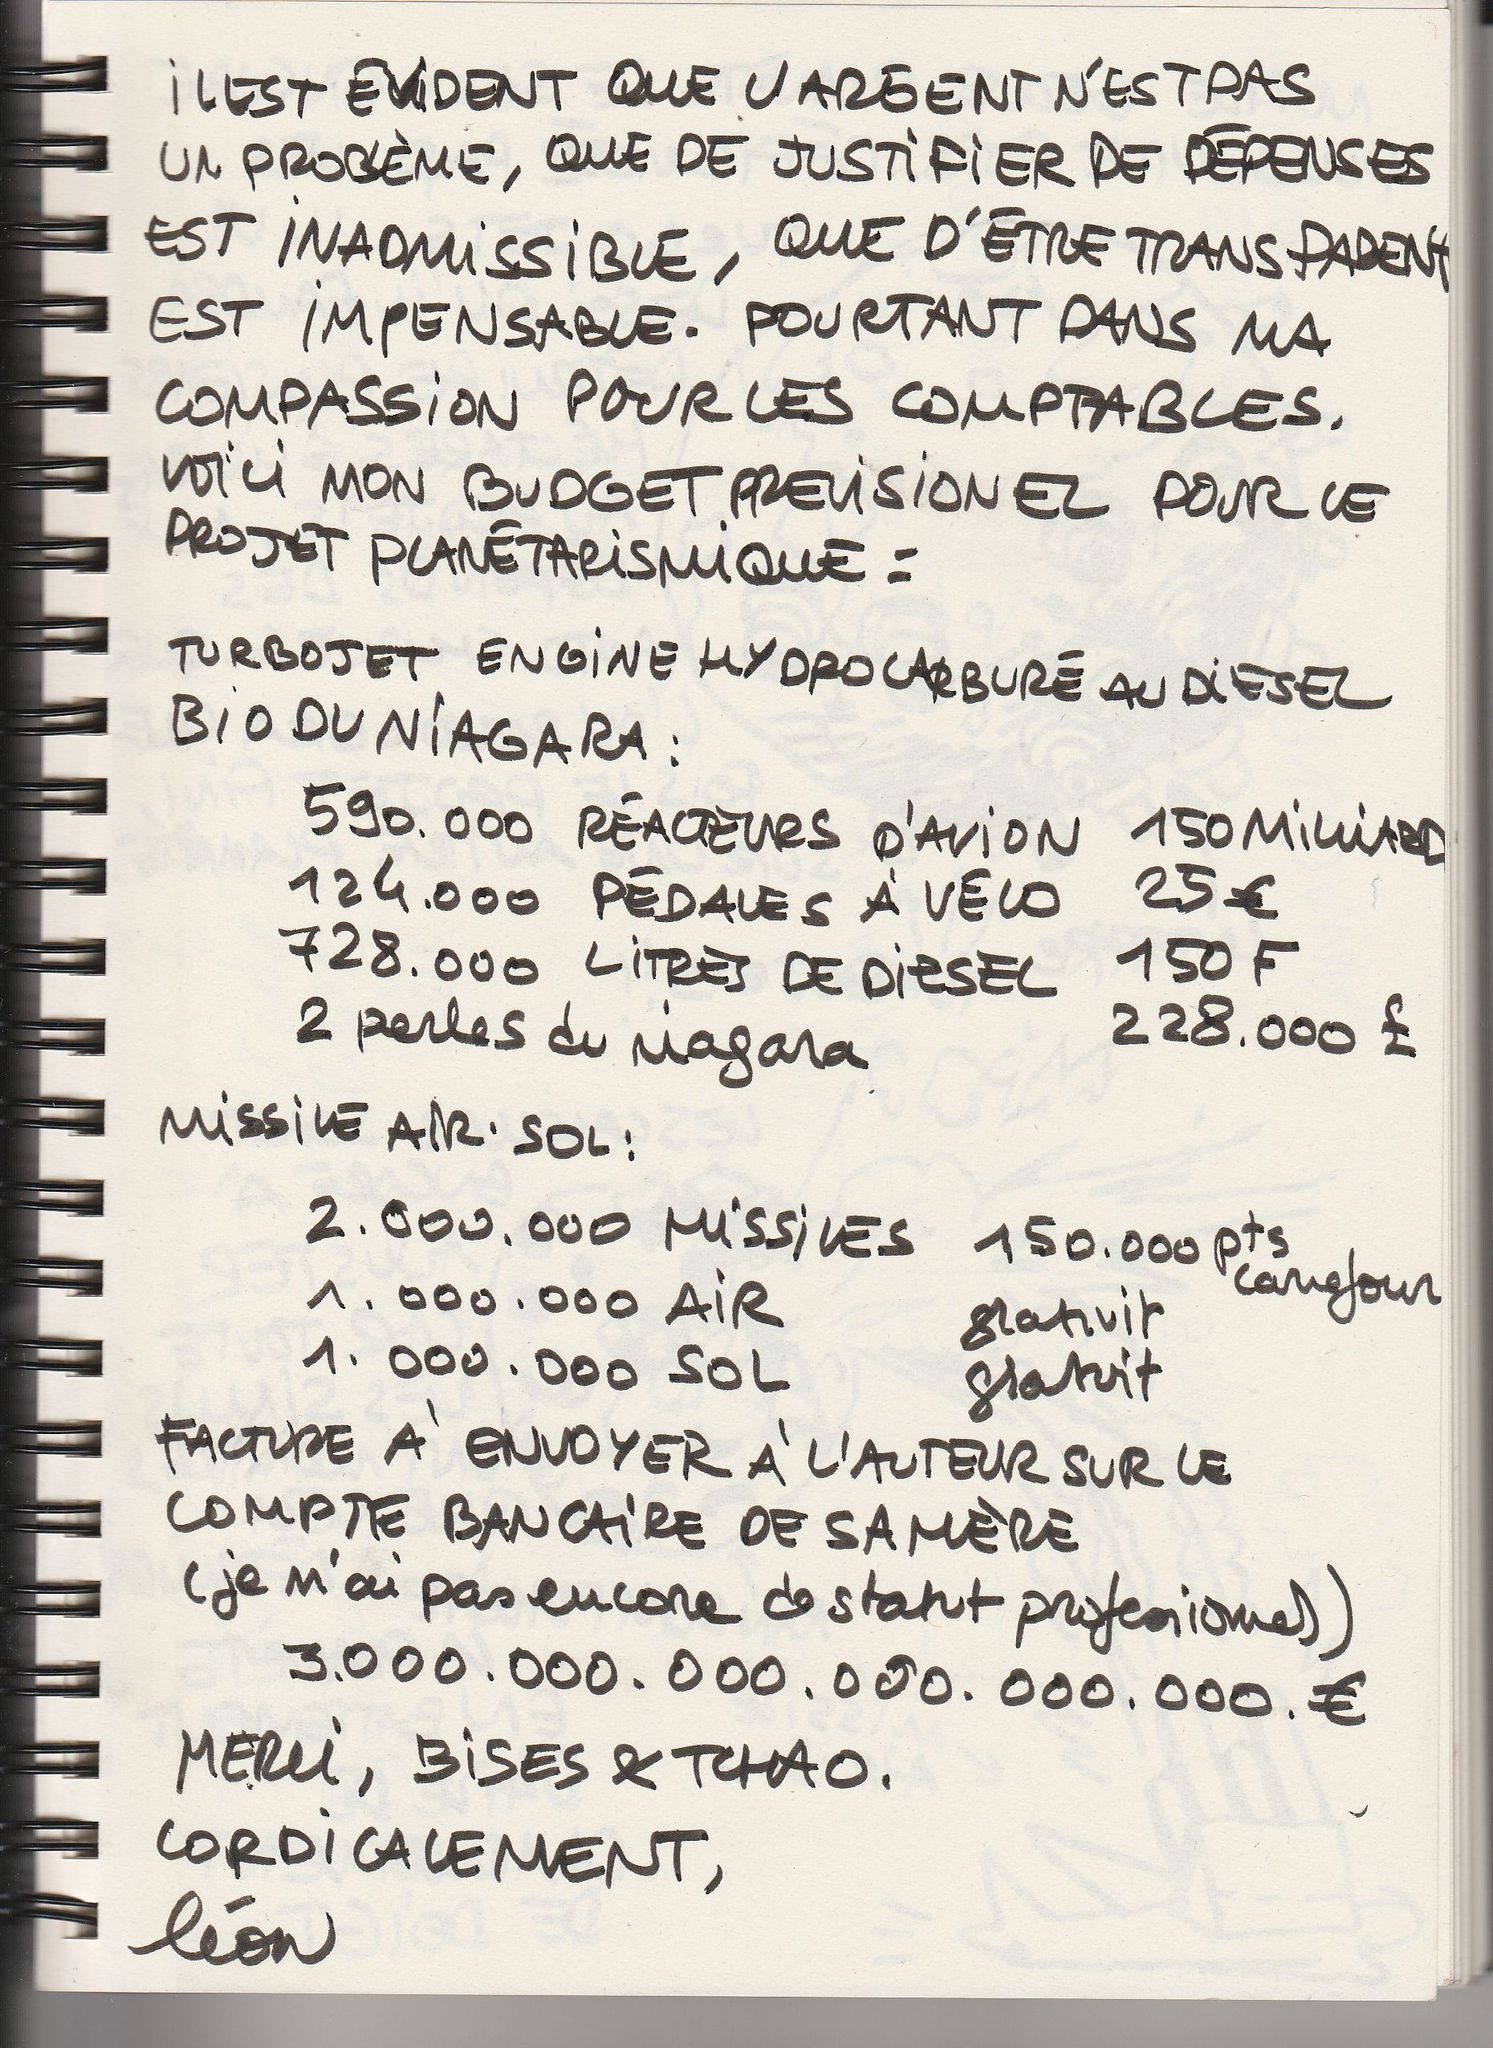 iL EST ÉVIDENT QUE L'ARGENT N'EST PAS
UN PROBLÈME, QUE DE JUSTIFIER DE DÉPENSES
EST INADMISSIBLE, QUE D'ÊTRE TRANSPARENT
EST IMPENSABLE. POURTANT DANS MA
COMPASSION POUR LES COMPTABLES.
VOICI MON BUDGET PREVISIONEL POUR LE
PROJET PLANÉTARISMIQUE =
TURBOJET ENGINE HYDROCARBURÉ AU DIESEL
BIO DU NIAGARA :
590.000 RÉACTEURS D'AVION 150 MILLIARD
124.000 PÉDALES À VÉLO 25 €
728.000 LITRES DE DIESEL 150 F
2 perles du niagara 228.000 £
MISSILE AIR. SOL :
2.000.000 MISSILES 150.000 pts
carrefour
1.000.000 AIR gratuit
1.000.000 SOL gratuit
FACTURE À ENVOYER À L'AUTEUR SUR LE
COMPTE BANCAIRE DE SA MÈRE
(je n'ai pas encore de statut professionnel)
3.000.000.000.000.000.000.€
MERCI, BISES & TCHAO.
CORDICALEMENT,
léon